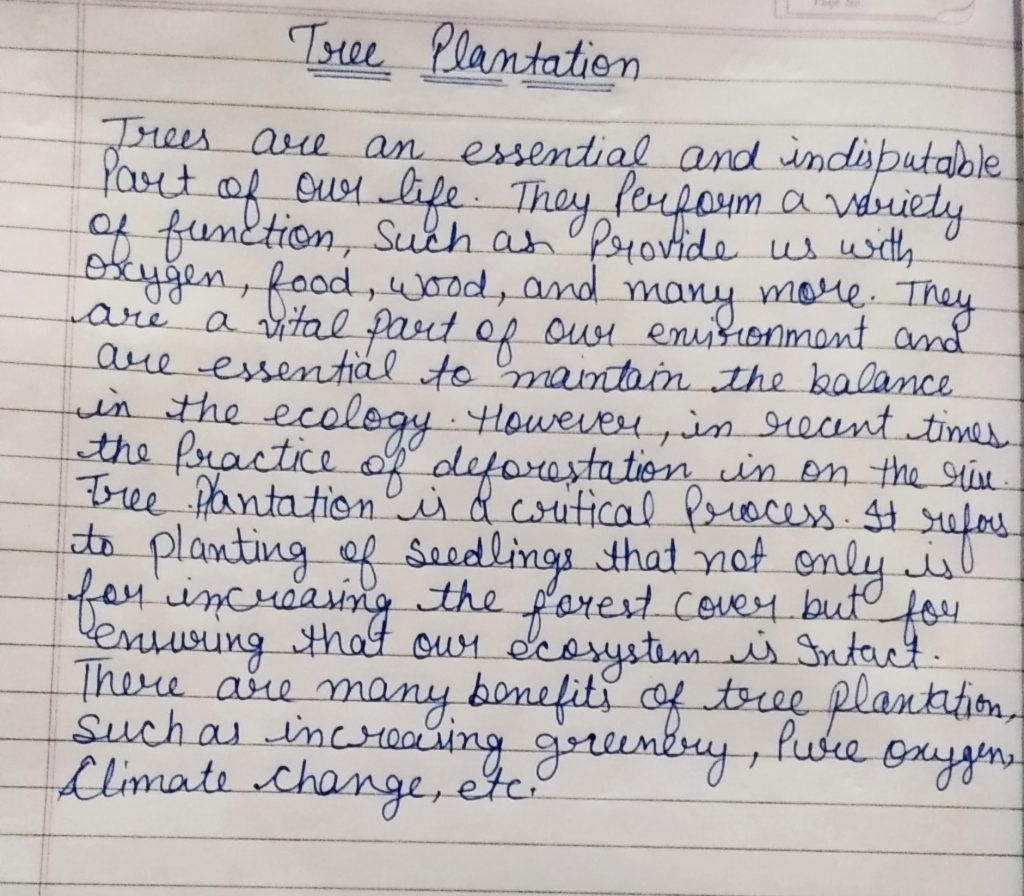 Tree Plantation
Trees are an essential and indisputable
Part of our life. They Perform a variety
of function, Such as Provide us with
oxygen, food, wood, and many more. They
are a vital part of our environment and
are essential to maintain the balance
in the ecology. However, in recent times
the Practice of deforestation in on the rise.
Tree Plantation is a critical Process. It refers
to planting of seedlings that not only is
for increasing the forest cover but for
ensuring that our ecosystem is Intact.
There are many benefits of tree plantation,
Such as increasing greenery, Pure oxygen,
Climate change, etc.